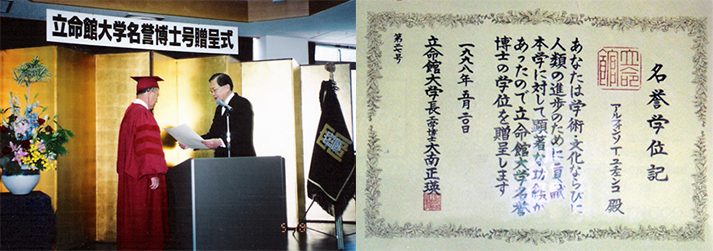 立命館大学名誉博士号贈呈式
名誉学位記
殿
あなたは学術文化ならびに
人類の進歩のために貢献し
本学に対して顕著な功績が
あったので立命館大学名誉
博士の学位を贈呈します
一九九八年 五月
立命館大学長 工学博士 大南正瑛